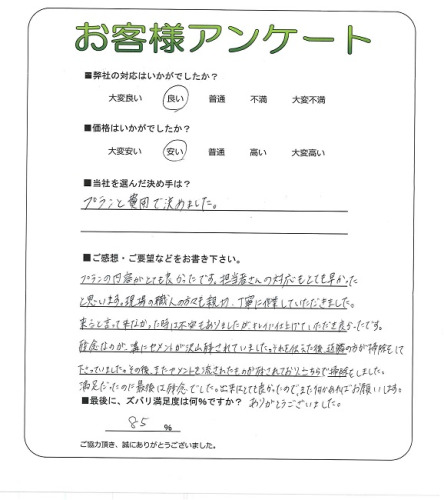 お客様アンケート
■弊社の対応はいかがでしたか？
大変良い 良い 普通 不満 大変不満
■価格はいかがでしたか？
大変安い 安い 普通 高い 大変高い
■当社を選んだ決め手は？
プランと費用で決めました。
■ご感想・ご要望などをお書き下さい。
プランの内容がとても良かったです。担当者さんの対応もとても早かった
と思います。現場の職人の方々も親切、丁寧に作業していただきました。
来ると言って来なかった時は不安もありましたが、キレイに仕上げていただき良かったです。
残念なのが、溝にセメントが沢山残されていました。それを伝えた後、近隣の方が掃除をして
下さっていました。その後、またセメントを流されたものが残されておりこちらで掃除をしました。
満足だったのに最後は残念でした。出来はとても良かったので、また何かあればお願いします。
■最後に、ズバリ満足度は何%ですか？ ありがとうございました。
85 %
ご協力頂き、誠にありがとうございました。